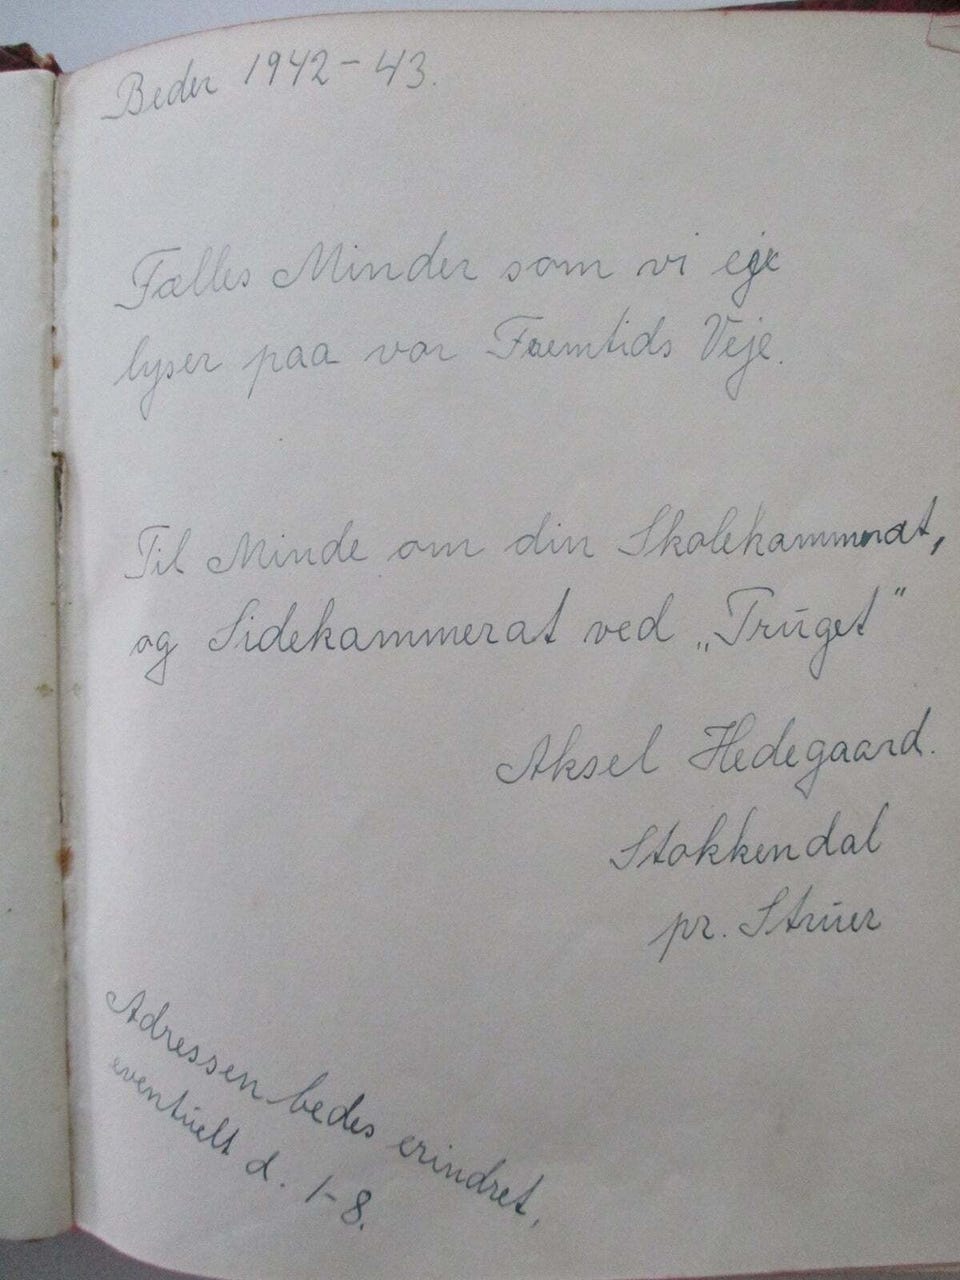 Beder 1942-43.
Fælles Minder som vi eje
lyser paa vor Fremtids Veje.
Til Minde om din Skolekammerat,
og Sidekammerat ved „Truget”
Aksel Hedegaard.
Stokkendal
pr. Struer
Adressen bedes erindret,
eventuelt d. 1-8.